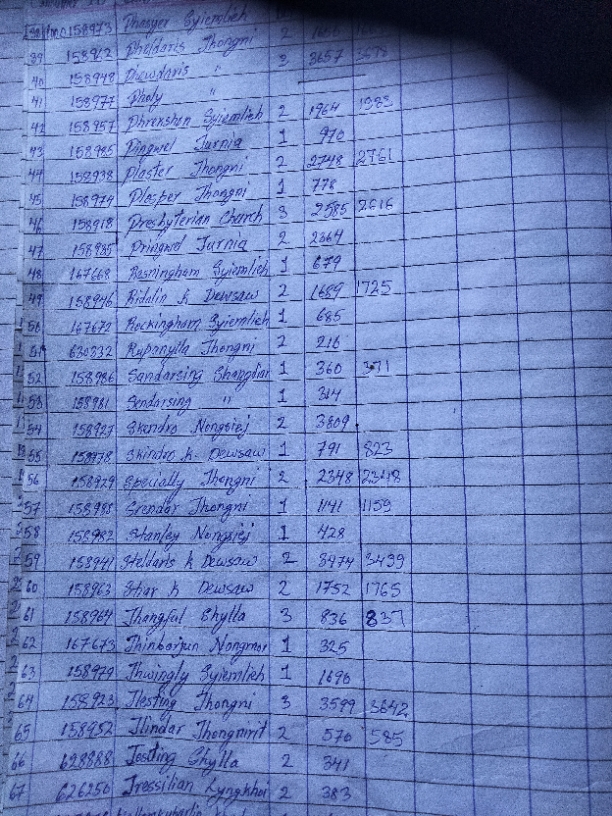 158973 Phasyer Syiemlich 2
39 158962 Pheldaris Thongni 2
40 158948 Phewdaris " 3 3657 3678
41 158977 Pholy "
42 158957 Phrenshen Syiemlich 2 1964 1983
43 158985 Pingwel Turnia 1 970
44 158938 Plaster Thongni 2 2748 2761
45 158974 Plosper Thongni 1 778
46 158918 Presbyterian Church 3 2585 2616
47 158935 Pringwel Turnia 2 2364
48 167668 Rasningham Syiemlich 1 679
49 158946 Ridalin k Dewsaw 2 1689 1725
50 167672 Rockingham Syiemlich 1 685
51 630332 Rupanylla Thongni 2 216
52 158986 Sandarsing Shangdiar 1 360 371
53 158981 Sendarsing " 1 314
54 158927 Skendro Nongsiej 2 3809
55 158978 Skindro k Dewsaw 1 791 823
56 158929 Specially Thongni 2 2348 2348
57 158988 Srendar Thongni 1 1141 1159
58 158982 Stanley Nongsiej 1 428
59 158941 Steldaris k Dewsaw 2 3474 3499
60 158963 Stiar k Dewsaw 2 1752 1765
61 158964 Thongful Shylla 3 836 837
62 167673 Thinborjun Nongmar 1 325
63 158979 Thwingly Syiemlich 1 1690
64 158923 Tlesting Thongni 3 3599 3642
65 158952 Tlindar Thongnirit 2 570 585
66 628888 Tostting Shylla 2 341
67 626250 Tressilian Lyngkhoi 2 383